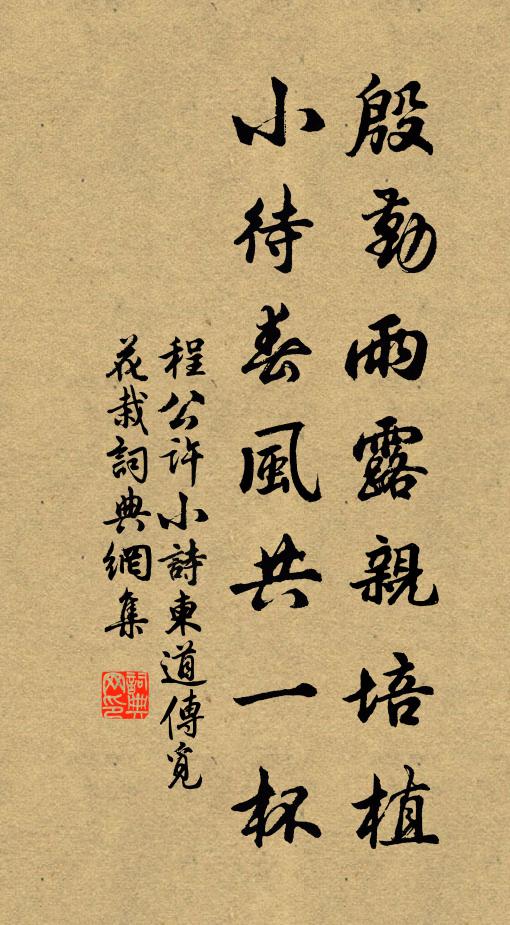 殷勤雨露親培植
小待春風共一杯
程公許小詩東道傳覓
花栽詞典網集
詞典
网印